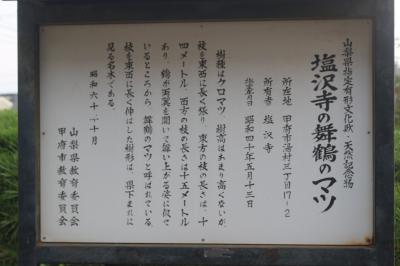 山梨県指定有形文化財、天然記念物
塩沢寺の舞鶴のマツ
所在地 甲府市湯村三丁目17-2
所有者 塩沢寺
指定月日 昭和四十年五月十三日
樹種はクロマツ 樹高はあまり高くないが、
枝を東西に長く張り 東方の枝の長さは 十
四メートル 西方の枝の長さは十五メートル
あり、鶴が両翼を開いて舞い上がる姿に似て
いるところから 舞鶴のマツと呼ばれている。
枝を東西に長く伸ばした樹形は、県下まれに
見る名木である。
昭和六十一、十月
山梨県教育委員会
甲府市教育委員会